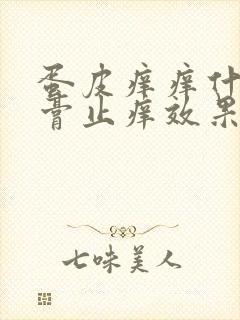 蛋皮痒痒什
膏止痒效果
七味美人